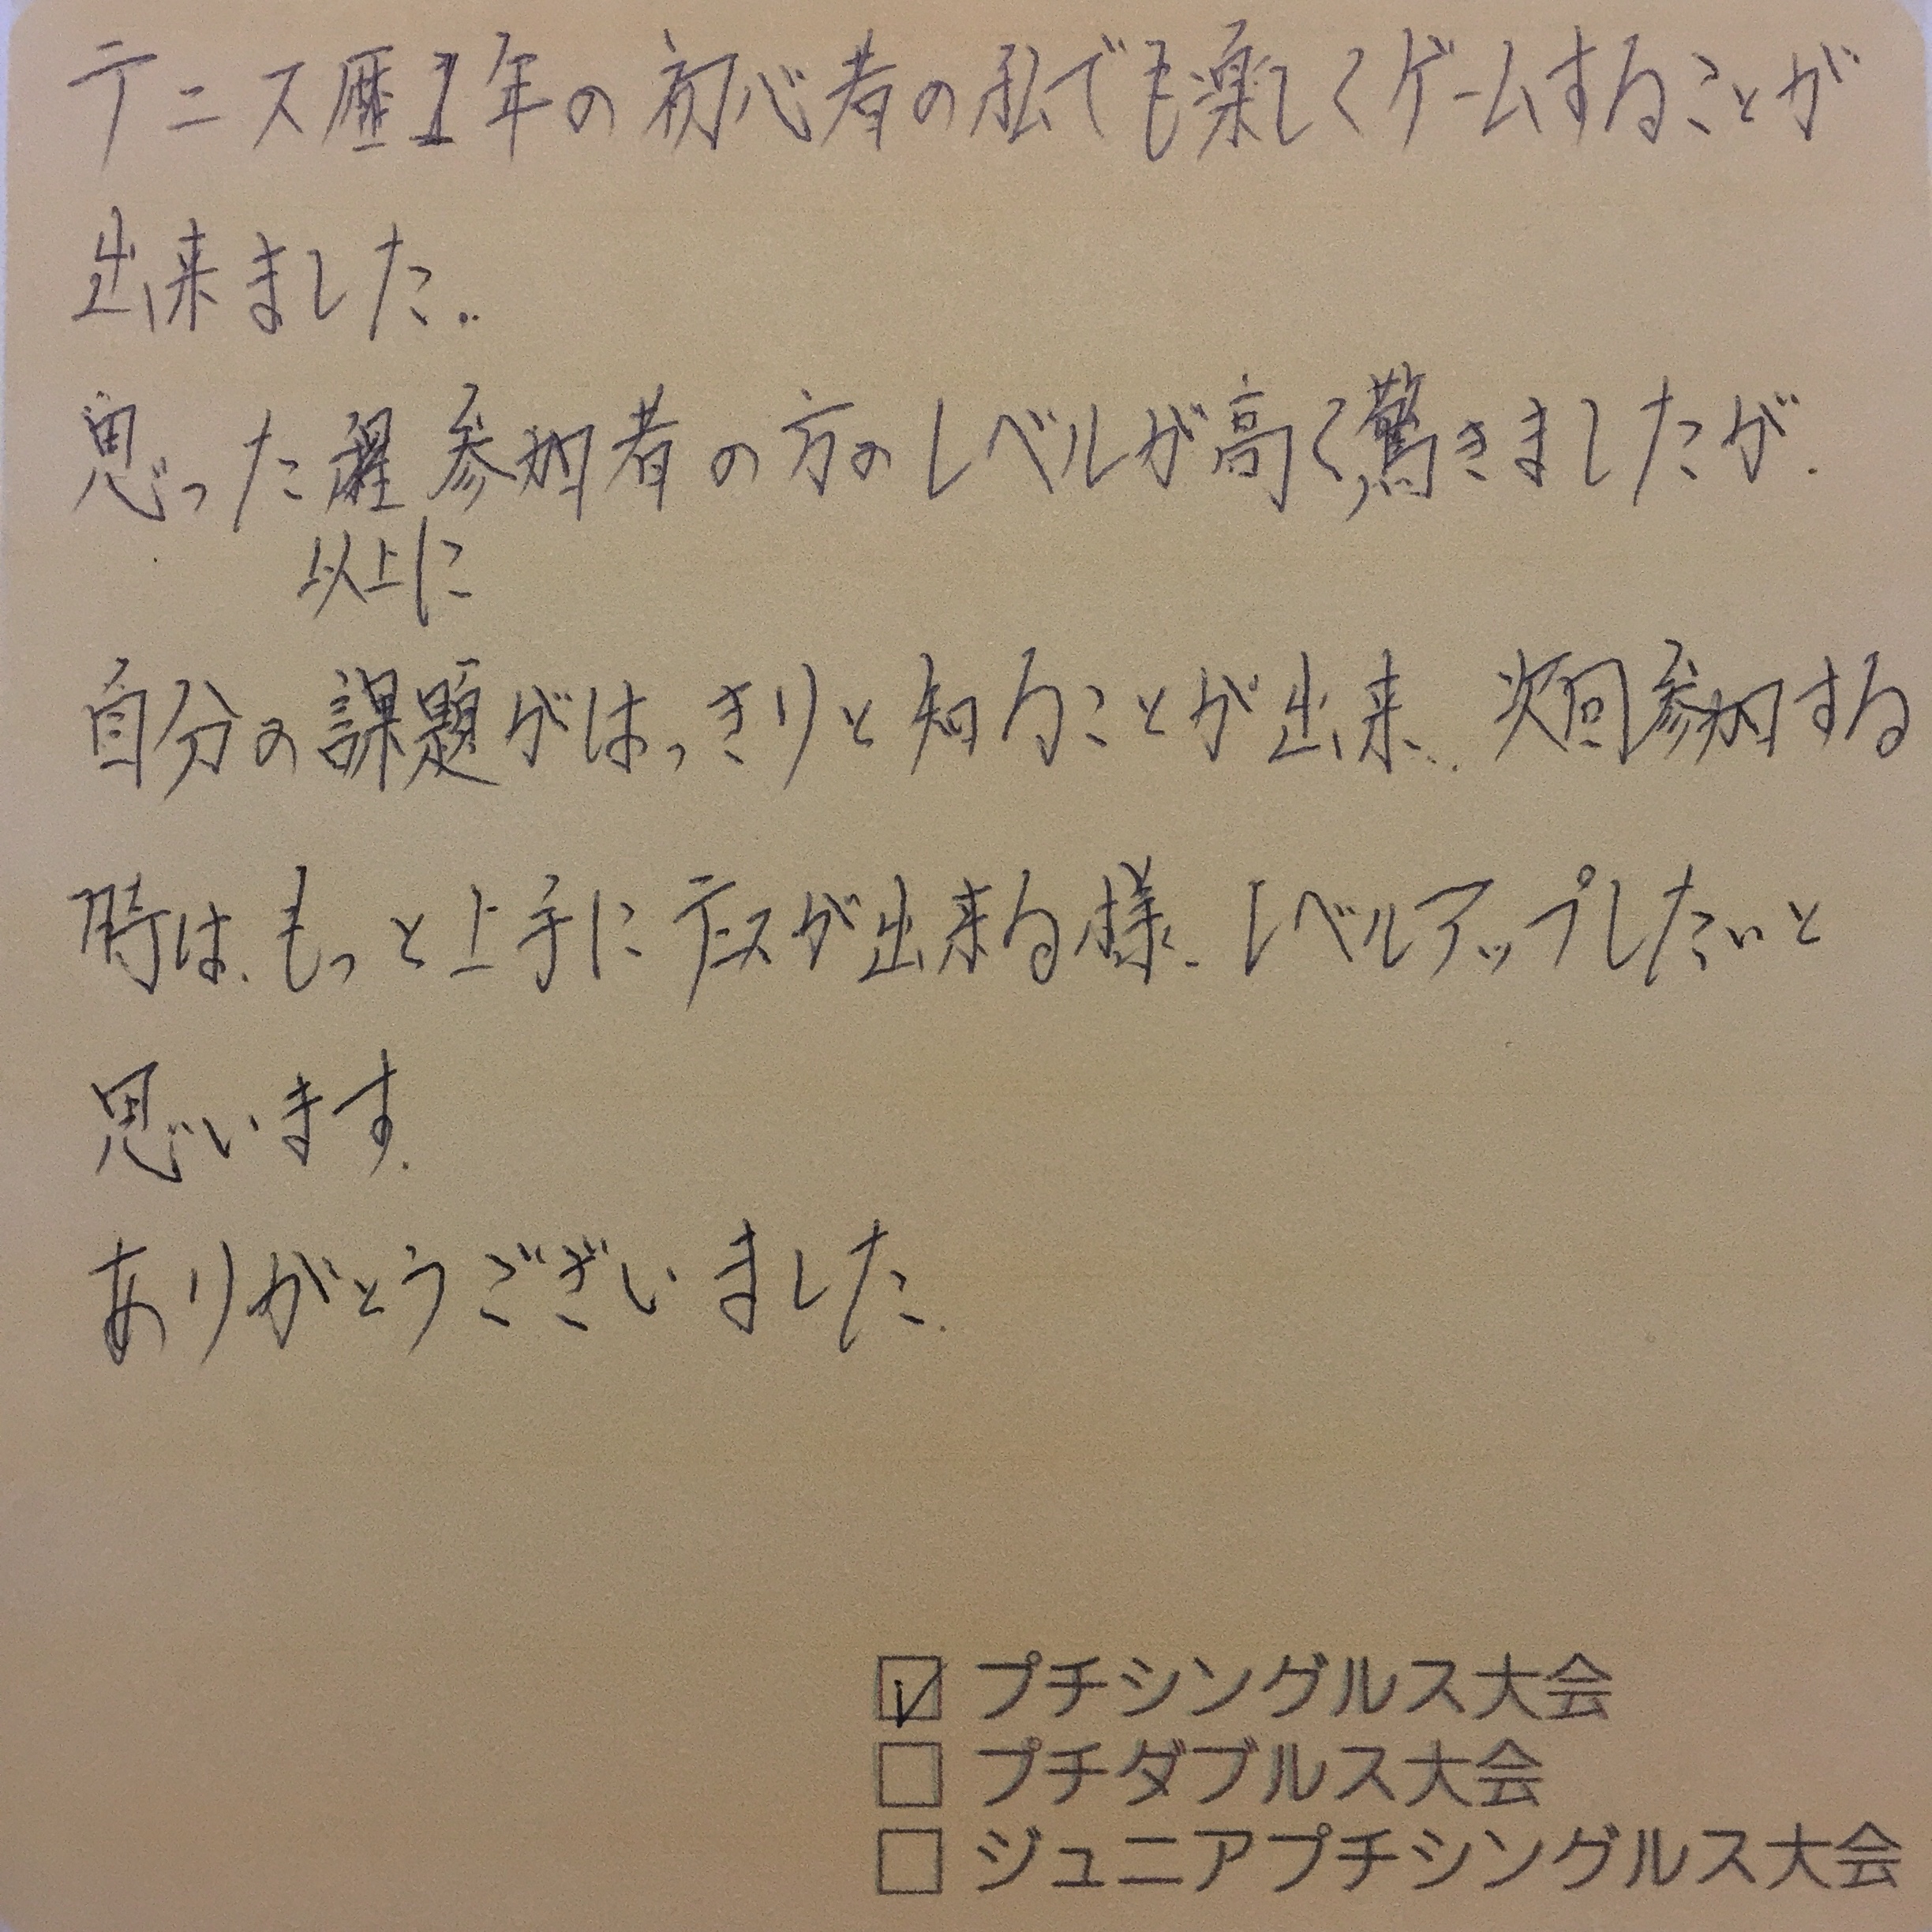 テニス歴1年の初心者の私でも楽しくゲームすることが
出来ました。
思った 参加者の方のレベルが高く、驚きましたが、
以上に
自分の課題がはっきりと知ることが出来、次回参加する
時は、もっと上手にテニスが出来る様、レベルアップしたいと
思います。
ありがとうございました。
☑ プチシングルス大会
☐ プチダブルス大会
☐ ジュニアプチシングルス大会